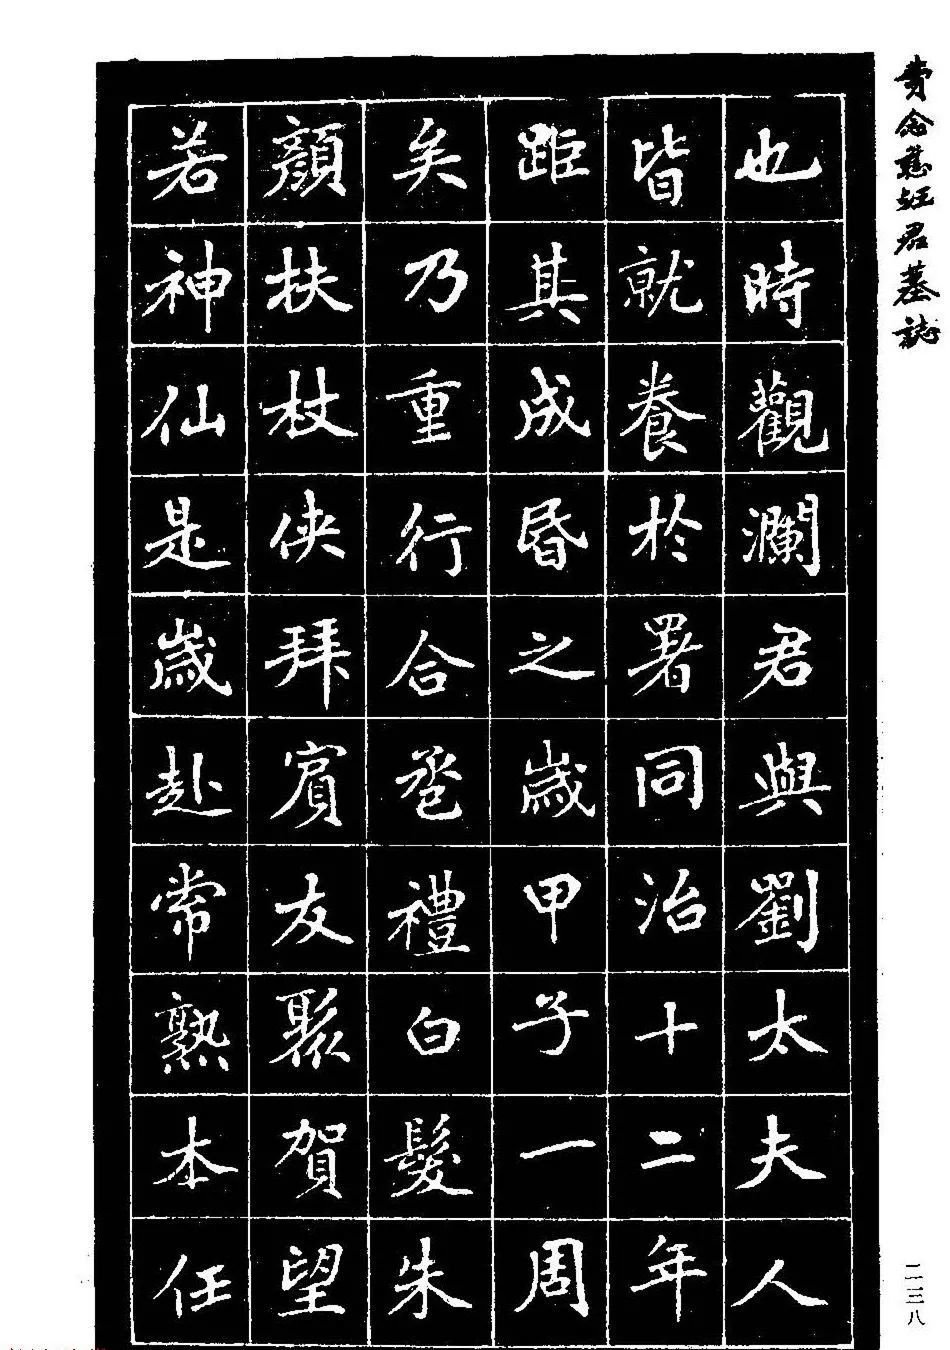 費念慈趙君墓誌
也時觀瀾君與劉太夫人
皆就養於署同治十二年
距其成昏之歲甲子一周
矣乃重行合巹禮白髮朱
顏扶杖俠拜賓友聚賀望
若神仙是歲赴常熟本任
二三八